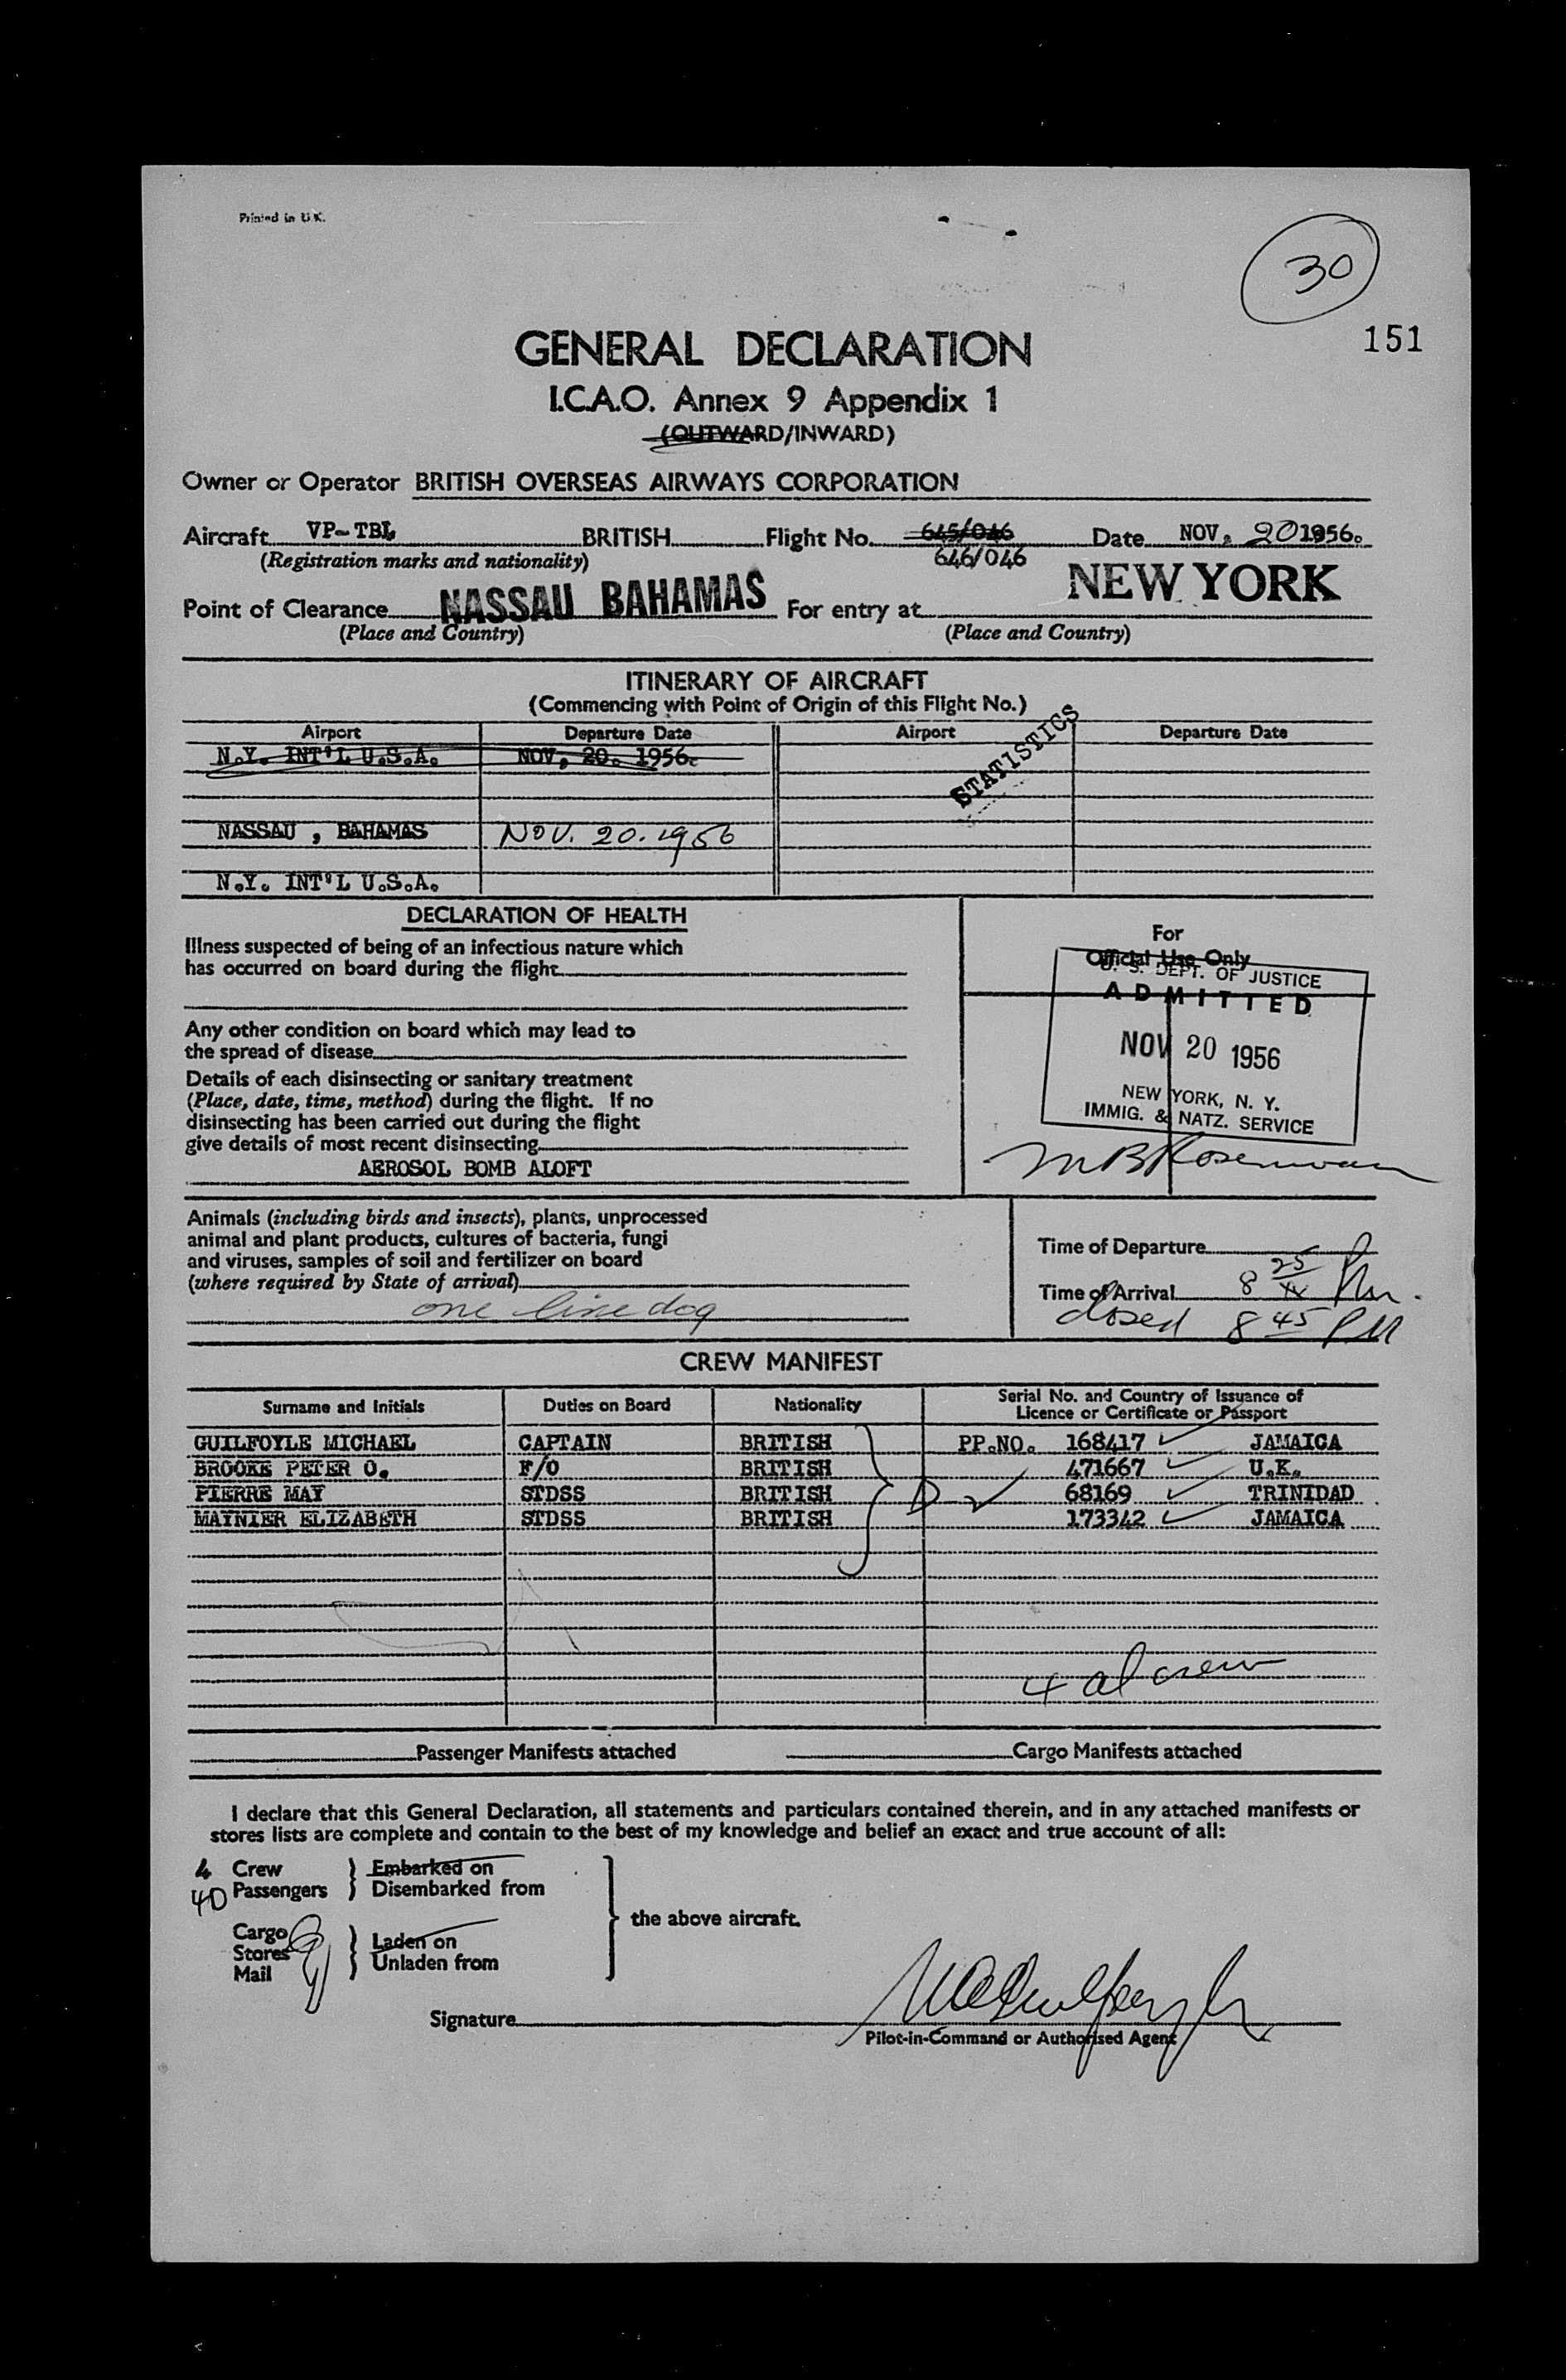 Printed in U.K.
30
151
GENERAL DECLARATION
I.C.A.O. Annex 9 Appendix 1
(OUTWARD/INWARD)
Owner or Operator BRITISH OVERSEAS AIRWAYS CORPORATION
Aircraft VP-TBL BRITISH Flight No. 645/046 Date NOV. 20 1956.
(Registration marks and nationality) 646/046
Point of Clearance NASSAU BAHAMAS For entry at NEW YORK
(Place and Country) (Place and Country)
ITINERARY OF AIRCRAFT
(Commencing with Point of Origin of this Flight No.)
STATISTICS
Airport Departure Date Airport Departure Date
N.Y. INT'L U.S.A. NOV, 20. 1956.
NASSAU , BAHAMAS NOV. 20. 1956
N.Y. INT'L U.S.A.
DECLARATION OF HEALTH
Illness suspected of being of an infectious nature which
has occurred on board during the flight
Any other condition on board which may lead to
the spread of disease
Details of each disinsecting or sanitary treatment
(Place, date, time, method) during the flight. If no
disinsecting has been carried out during the flight
give details of most recent disinsecting
AEROSOL BOMB ALOFT
For
Official Use Only
U. S. DEPT. OF JUSTICE
ADMITTED
NOV 20 1956
NEW YORK, N. Y.
IMMIG. & NATZ. SERVICE
Animals (including birds and insects), plants, unprocessed
animal and plant products, cultures of bacteria, fungi
and viruses, samples of soil and fertilizer on board
(where required by State of arrival)
one live dog
Time of Departure
Time of Arrival 8 25 Pm.
closed 8 45 PM
CREW MANIFEST
Surname and Initials Duties on Board Nationality Serial No. and Country of Issuance of
Licence or Certificate or Passport
GUILFOYLE MICHAEL CAPTAIN BRITISH PP.NO. 168417 JAMAICA
BROOKE PETER O. F/O BRITISH 471667 U.K.
PIERRE MAY STDSS BRITISH D 68169 TRINIDAD
MAYNIER ELIZABETH STDSS BRITISH 173342 JAMAICA
4 al crew
Passenger Manifests attached Cargo Manifests attached
I declare that this General Declaration, all statements and particulars contained therein, and in any attached manifests or
stores lists are complete and contain to the best of my knowledge and belief an exact and true account of all:
4 Crew Embarked on
40 Passengers Disembarked from
the above aircraft.
Cargo Laden on
Stores Unladen from
Mail
Signature
Pilot-in-Command or Authorised Agent